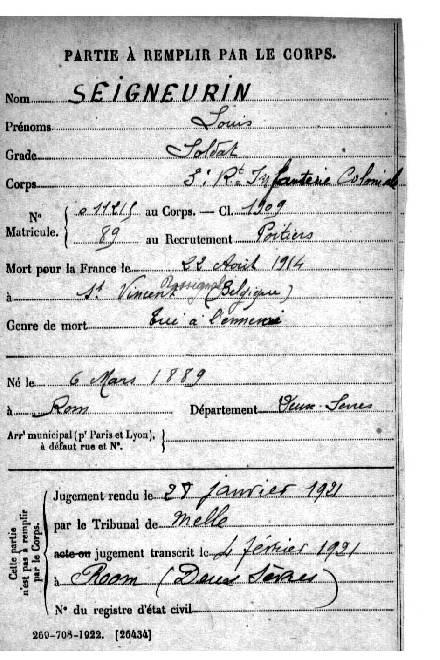 PARTIE À REMPLIR PAR LE CORPS.
Nom SEIGNEURIN
Prénoms Louis
Grade Soldat
Corps 3e Rt Infanterie Coloniale
N° Matricule. { 011215 au Corps. — Cl. 1909
89 au Recrutement Poitiers
Mort pour la France le 22 Août 1914
à St Vincent Rossignol (Belgique)
Genre de mort Tué à l'ennemi
Né le 6 Mars 1889
à Rom Département Deux-Sèvres
Arrt municipal (pr Paris et Lyon), à défaut rue et N°. }
Cette partie n'est pas à remplir par le Corps.
Jugement rendu le 28 janvier 1921
par le Tribunal de Melle
acte ou jugement transcrit le 4 février 1921
à Room (Deux Sèvres)
N° du registre d'état civil
269-708-1922. [26434]